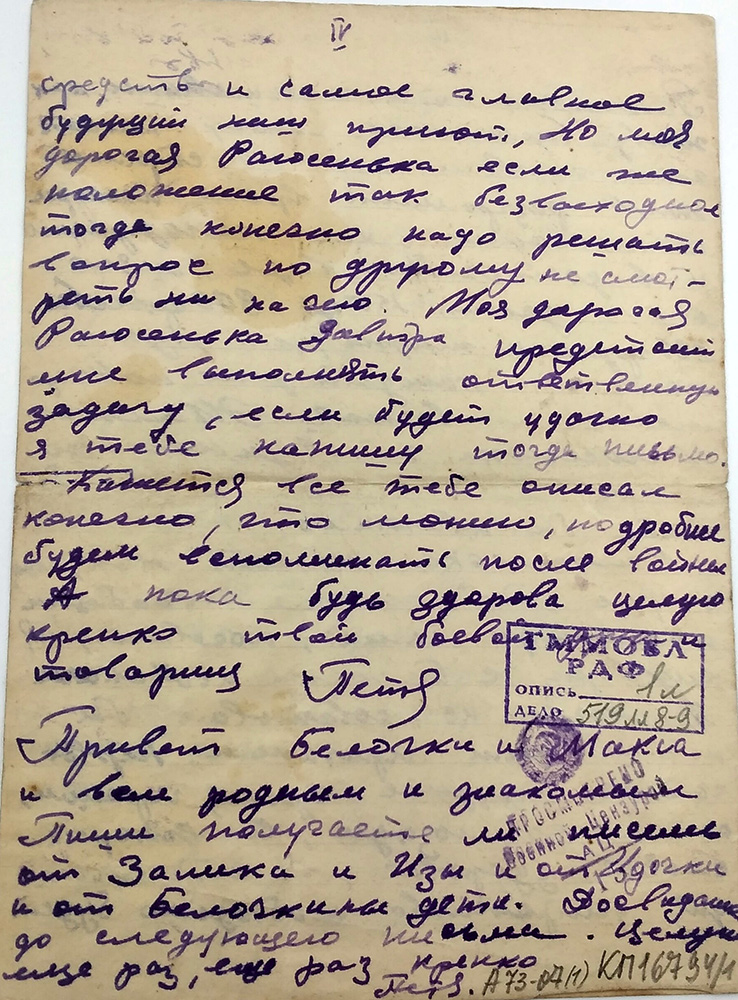 IV
средств и самое главное
будущий наш приют, Но моя
дорогая Раюсенька если же
положение так безвыходное
тогда конечно надо решать
вопрос по другому не смот-
реть ни на что. Моя дорогая
Раюсенька Завтра предстоит
мне выполнять ответственную
задачу, если будет удачно
я тебе напишу тогда письмо.
Кажется все тебе описал
конечно, что можно, подробнее
будем вспоминать после войны
А пока будь здорова целую
крепко твой боевой
товарищ Петя
ГММОБЛ
РДФ
ОПИСЬ 1л
ДЕЛО 519лл 8-9
Привет Белочки и Макса
и всем родным и знакомым
ПРОСМОТРЕНО
Военной Цензурой
Пиши получаете ли письма
от Залика и Изы и от
и от Белочкины дети. Досвидания
до следующего письма. Целую
еще раз, еще раз крепко
Петя. А73-07(1) КП16794/1